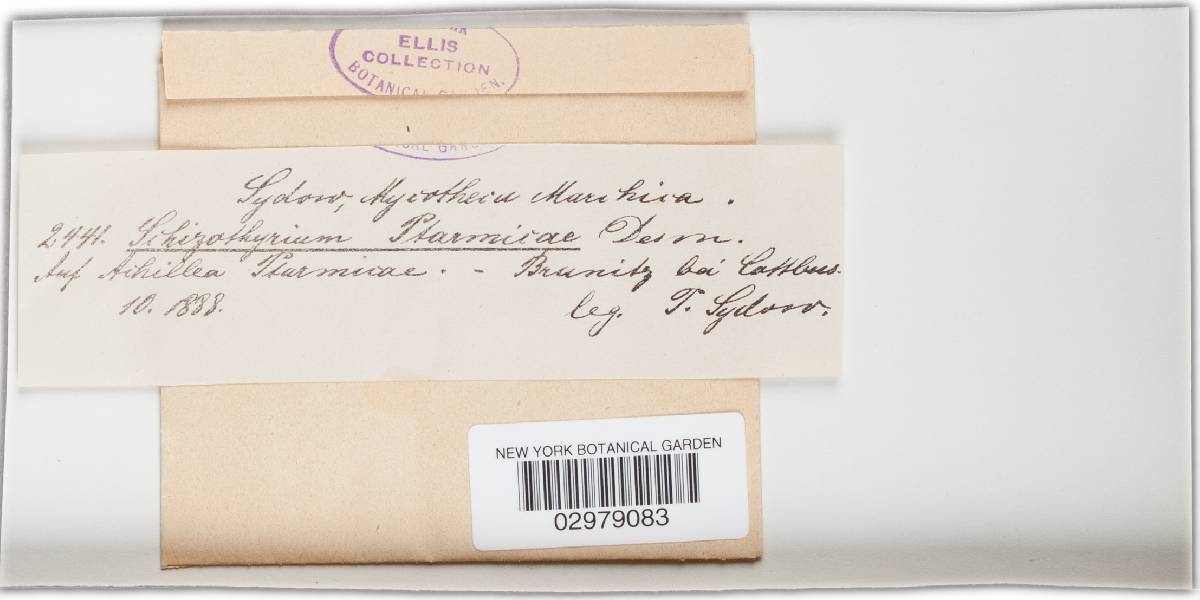 ELLIS
COLLECTION
BOTANICAL GARDEN.
Sydow, Mycotheca Marchica.
2441. Schizothyrium Ptarmicae Desm.
Auf Achillea Ptarmicae. - Brunitz bei Cottbus.
10. 1888. leg. P. Sydow.
NEW YORK BOTANICAL GARDEN
02979083